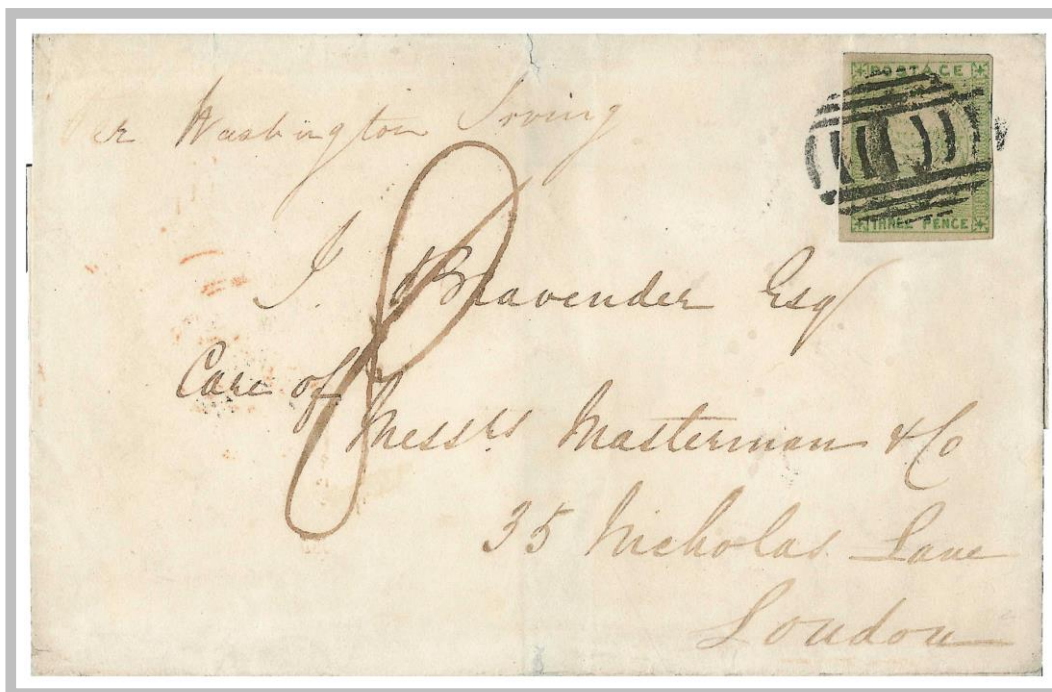 Per Washington Irving
POSTAGE
THREE PENCE
8
J. Bravender Esq
Care of
Messrs Masterman & Co
35 Nicholas Lane
London